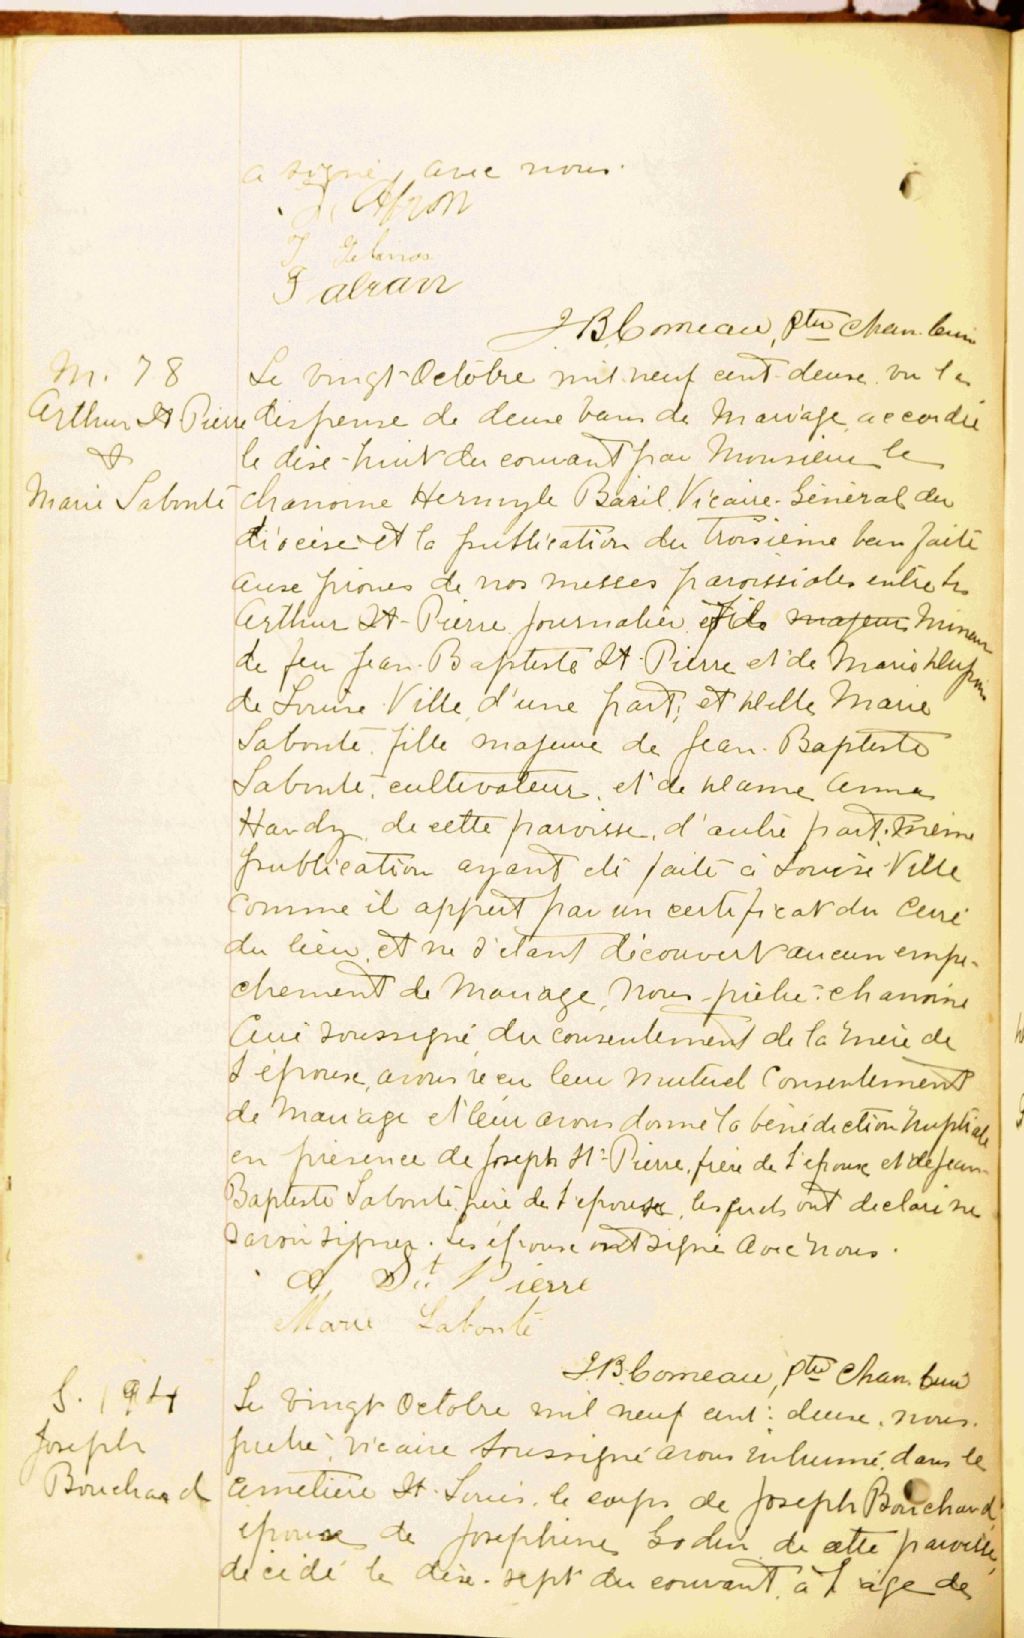 a signé avec nous.
J. B. Comeau, ptre chan. curé
M. 78
Arthur St Pierre
&
Marie Labonté
Le vingt Octobre mil neuf cent deux vu la
dispense de deux bans de mariage accordée
le dix-huit du courant par Monsieur le
chanoine Hermyle Baril Vicaire-Général du
diocèse et la publication du troisième ban faite
aux prônes de nos messes paroissiales entre
Arthur St-Pierre journalier fils majeur mineur
de feu Jean-Baptiste St-Pierre et de Marie
de Louise Ville d'une part; et Delle Marie
Labonté, fille majeure de Jean-Baptiste
Labonté, cultivateur, et de Dame Anna
Hardy de cette paroisse, d'autre part; même
publication ayant été faite à Louise-Ville
comme il appert par un certificat du Curé
du lieu, et ne s'étant découvert aucun empê-
chement de mariage, nous prêtre-chanoine
Curé soussigné du consentement de la mère de
l'époux, avons reçu leur mutuel consentement
de mariage et leur avons donné la bénédiction nuptiale
en présence de Joseph St-Pierre, frère de l'époux et de Jean-
Baptiste Labonté père de l'épouse, lesquels ont déclaré ne
savoir signer. Les époux ont signé avec nous.
A St Pierre
Marie Labonté
J. B. Comeau, ptre chan. curé
S. 194
Joseph
Bouchard
Le vingt Octobre mil neuf cent deux, nous
prêtre, vicaire soussigné avons inhumé dans le
cimetière St-Louis, le corps de Joseph Bouchard,
époux de Josephine Godin de cette paroisse,
décédé le dix-sept du courant, à l'âge de